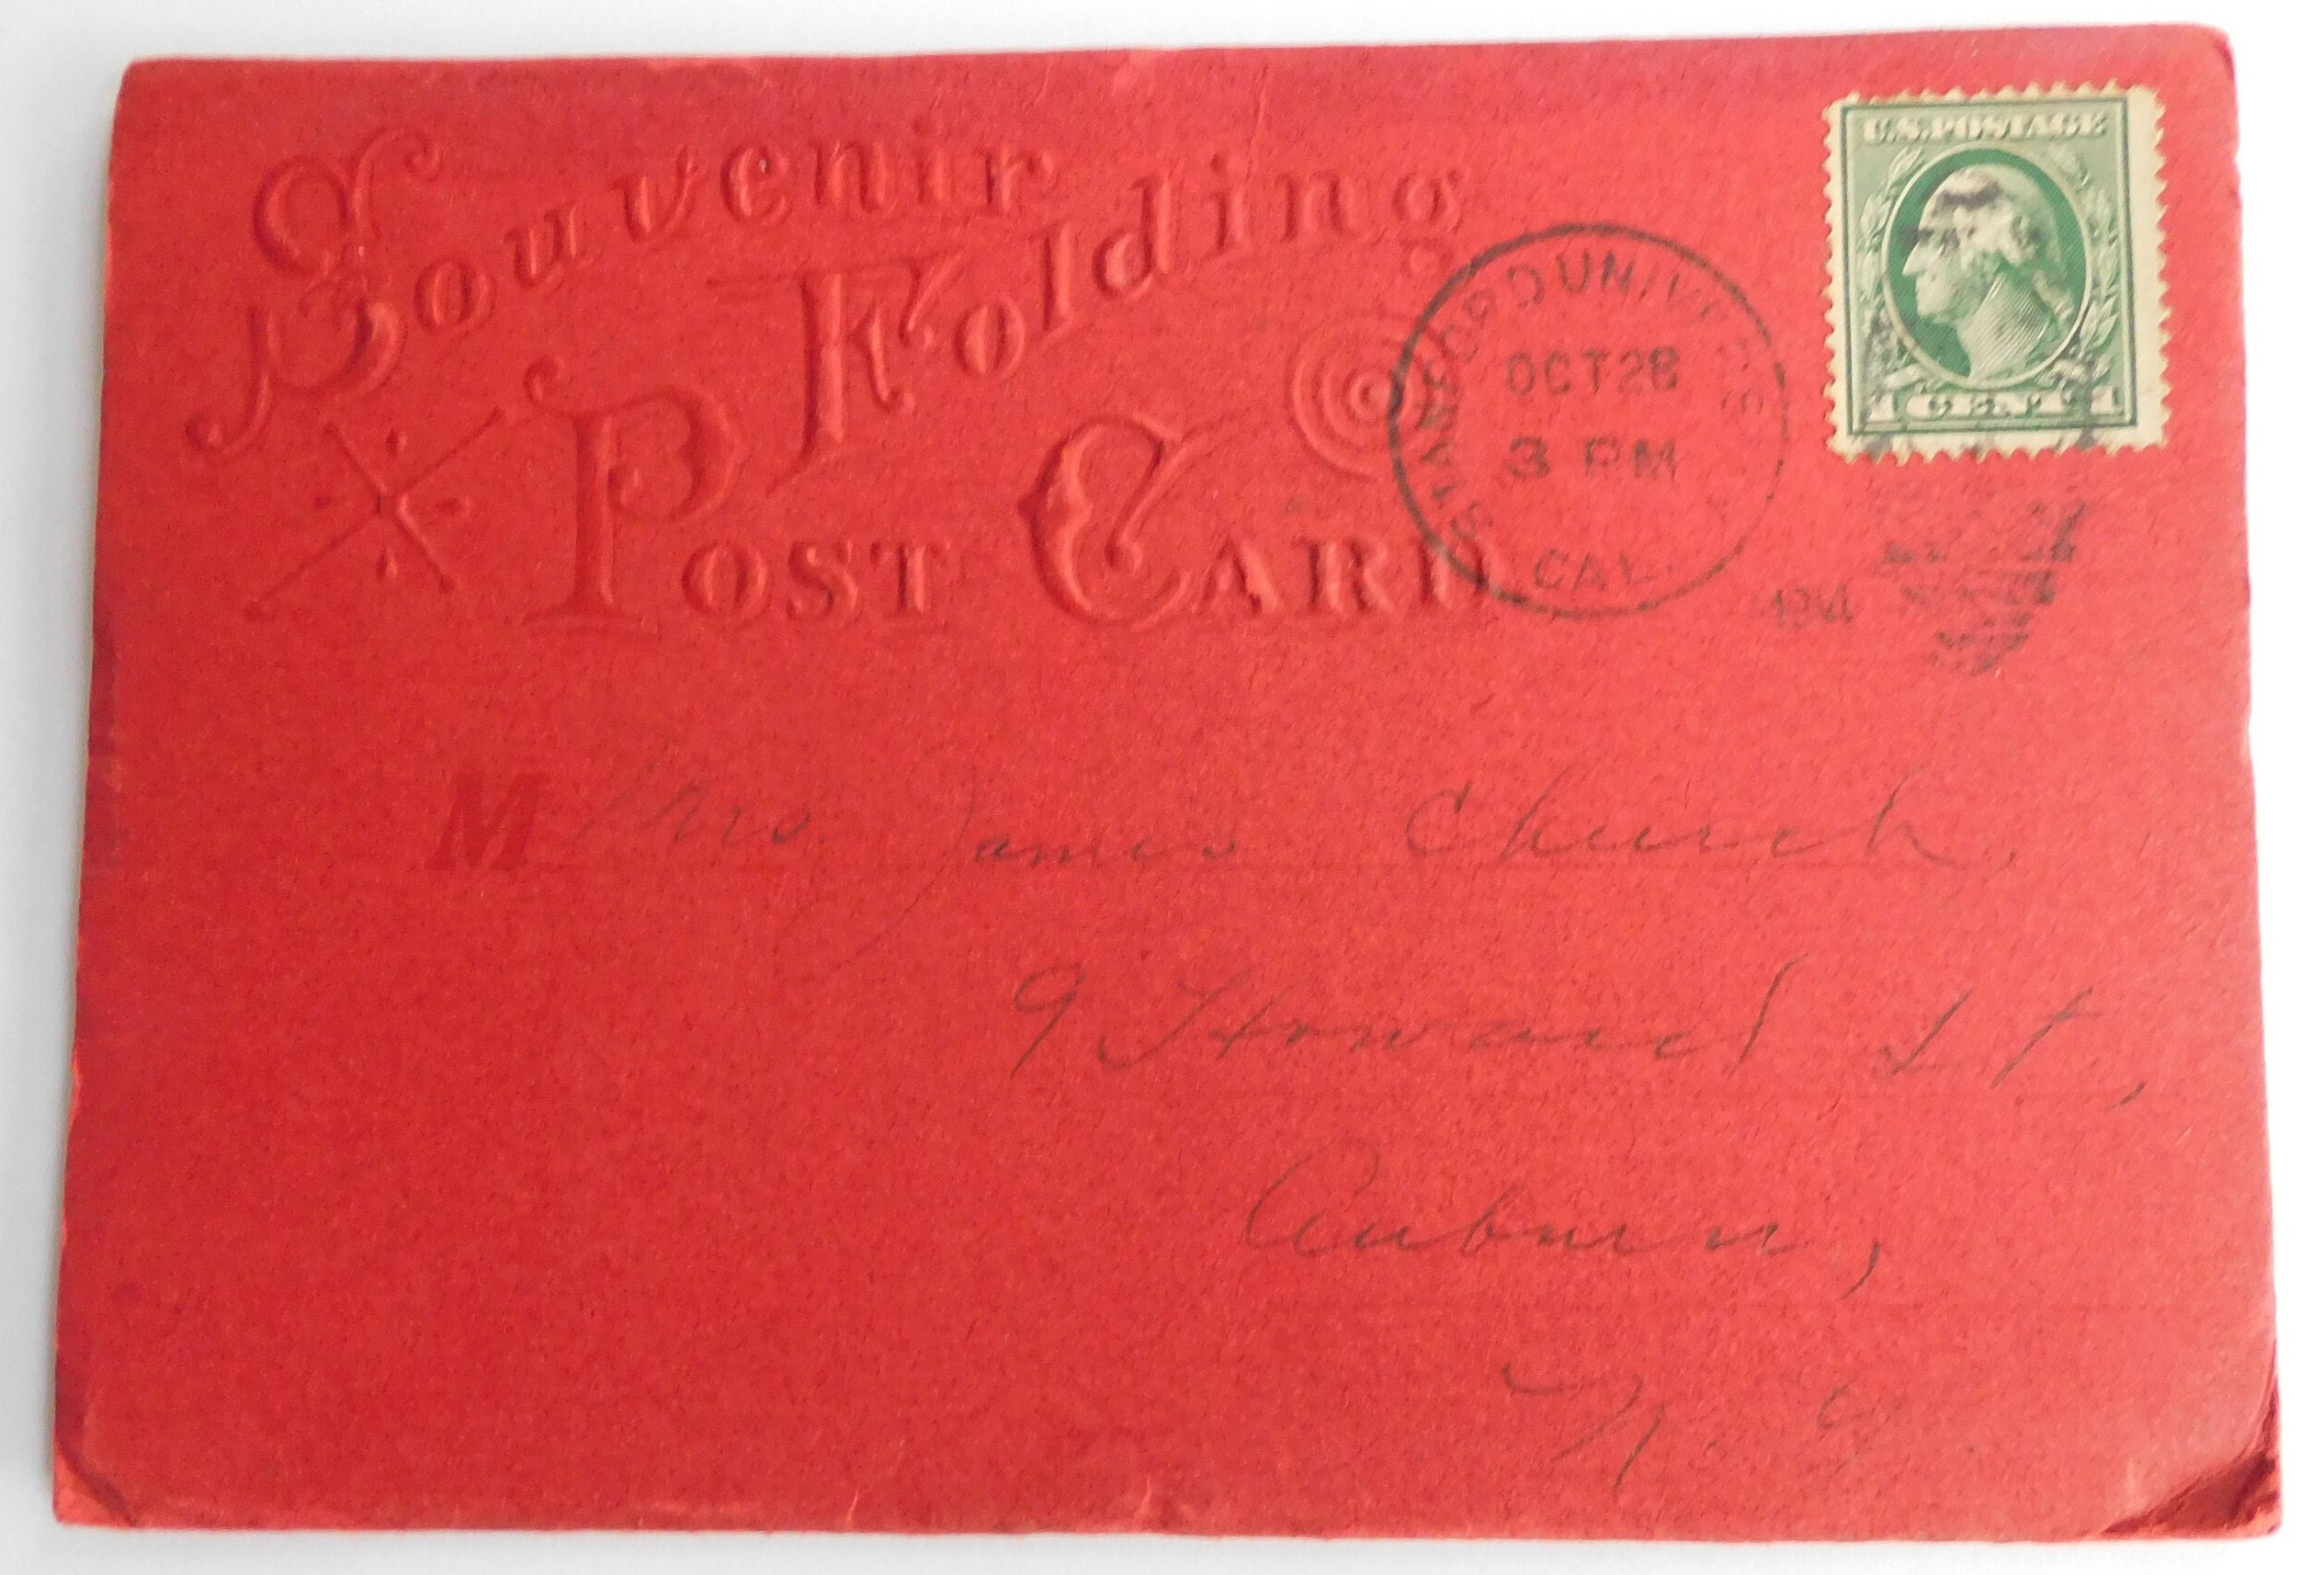 Souvenir
Folding
POST CARD
U.S.POSTAGE
STANFORD UNIVERS
OCT 28
3 PM
CAL.
M Mrs. James Church.
9 Howard St,
Auburn,
N. Y.